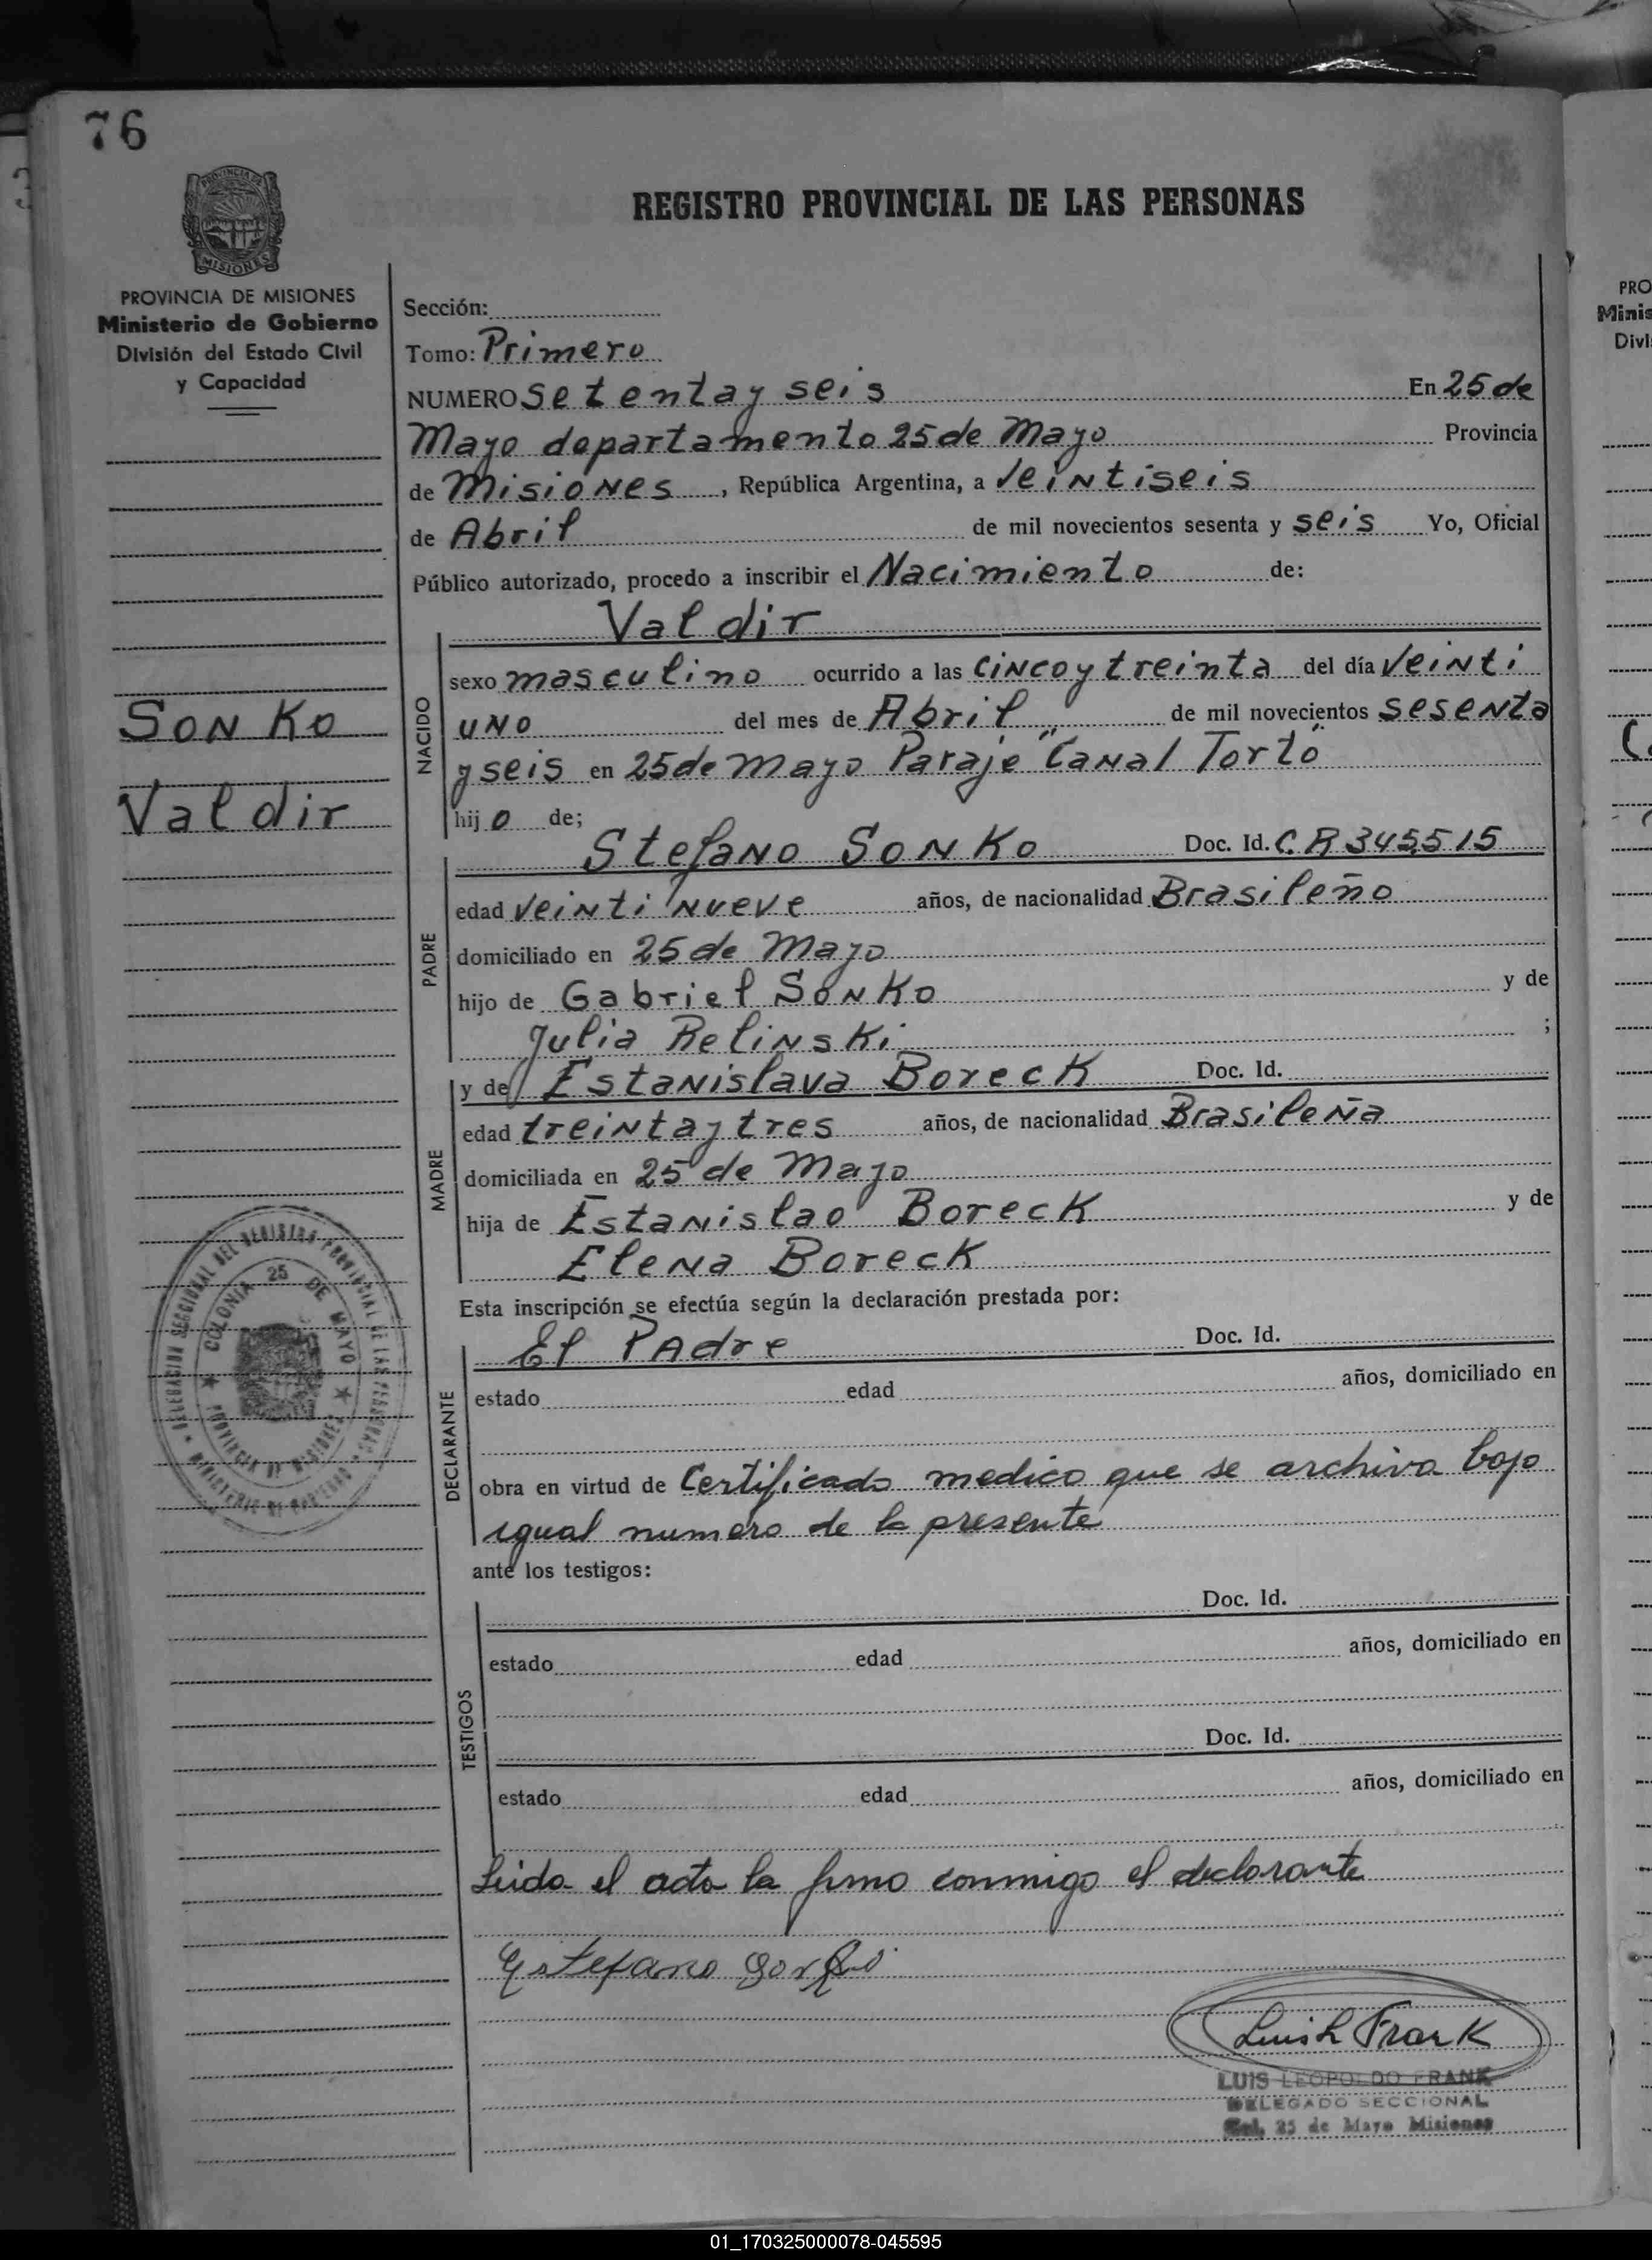 76
PROVINCIA DE
MISIONES
REGISTRO PROVINCIAL DE LAS PERSONAS
PROVINCIA DE MISIONES
Ministerio de Gobierno
División del Estado Civil
y Capacidad
SONKO
Valdir
Sección:
Tomo: Primero
NUMERO setenta y seis En 25 de
Mayo departamento 25 de Mayo Provincia
de Misiones, República Argentina, a veintiseis
de Abril de mil novecientos sesenta y seis Yo, Oficial
Público autorizado, procedo a inscribir el Nacimiento de:
Valdir
NACIDO
sexo masculino ocurrido a las cinco y treinta del día veinti
uno del mes de Abril de mil novecientos sesenta
y seis en 25 de Mayo Paraje "Canal Torto"
hijo de;
Stefano Sonko Doc. Id. C.R 345515
PADRE
edad veinti nueve años, de nacionalidad Brasileño
domiciliado en 25 de Mayo
hijo de Gabriel Sonko y de
Julia Relinski ;
y de Estanislava Boreck Doc. Id.
MADRE
edad treinta y tres años, de nacionalidad Brasileña
domiciliada en 25 de Mayo
hija de Estanislao Boreck y de
Elena Boreck
Esta inscripción se efectúa según la declaración prestada por:
El Padre Doc. Id.
DECLARANTE
estado edad años, domiciliado en
obra en virtud de Certificado medico que se archiva bajo
igual numero de la presente
ante los testigos:
Doc. Id.
TESTIGOS
estado edad años, domiciliado en
Doc. Id.
estado edad años, domiciliado en
Leida el acta la firmo conmigo el declarante
Estefano
Luis L Frank
LUIS LEOPOLDO FRANK
DELEGADO SECCIONAL
Col. 25 de Mayo Misiones
DELEGACION SECCIONAL DEL REGISTRO PROVINCIAL DE LAS PERSONAS
COLONIA 25 DE MAYO
PROVINCIA DE MISIONES
PRO
Minis
Divi
01_170325000078-045595